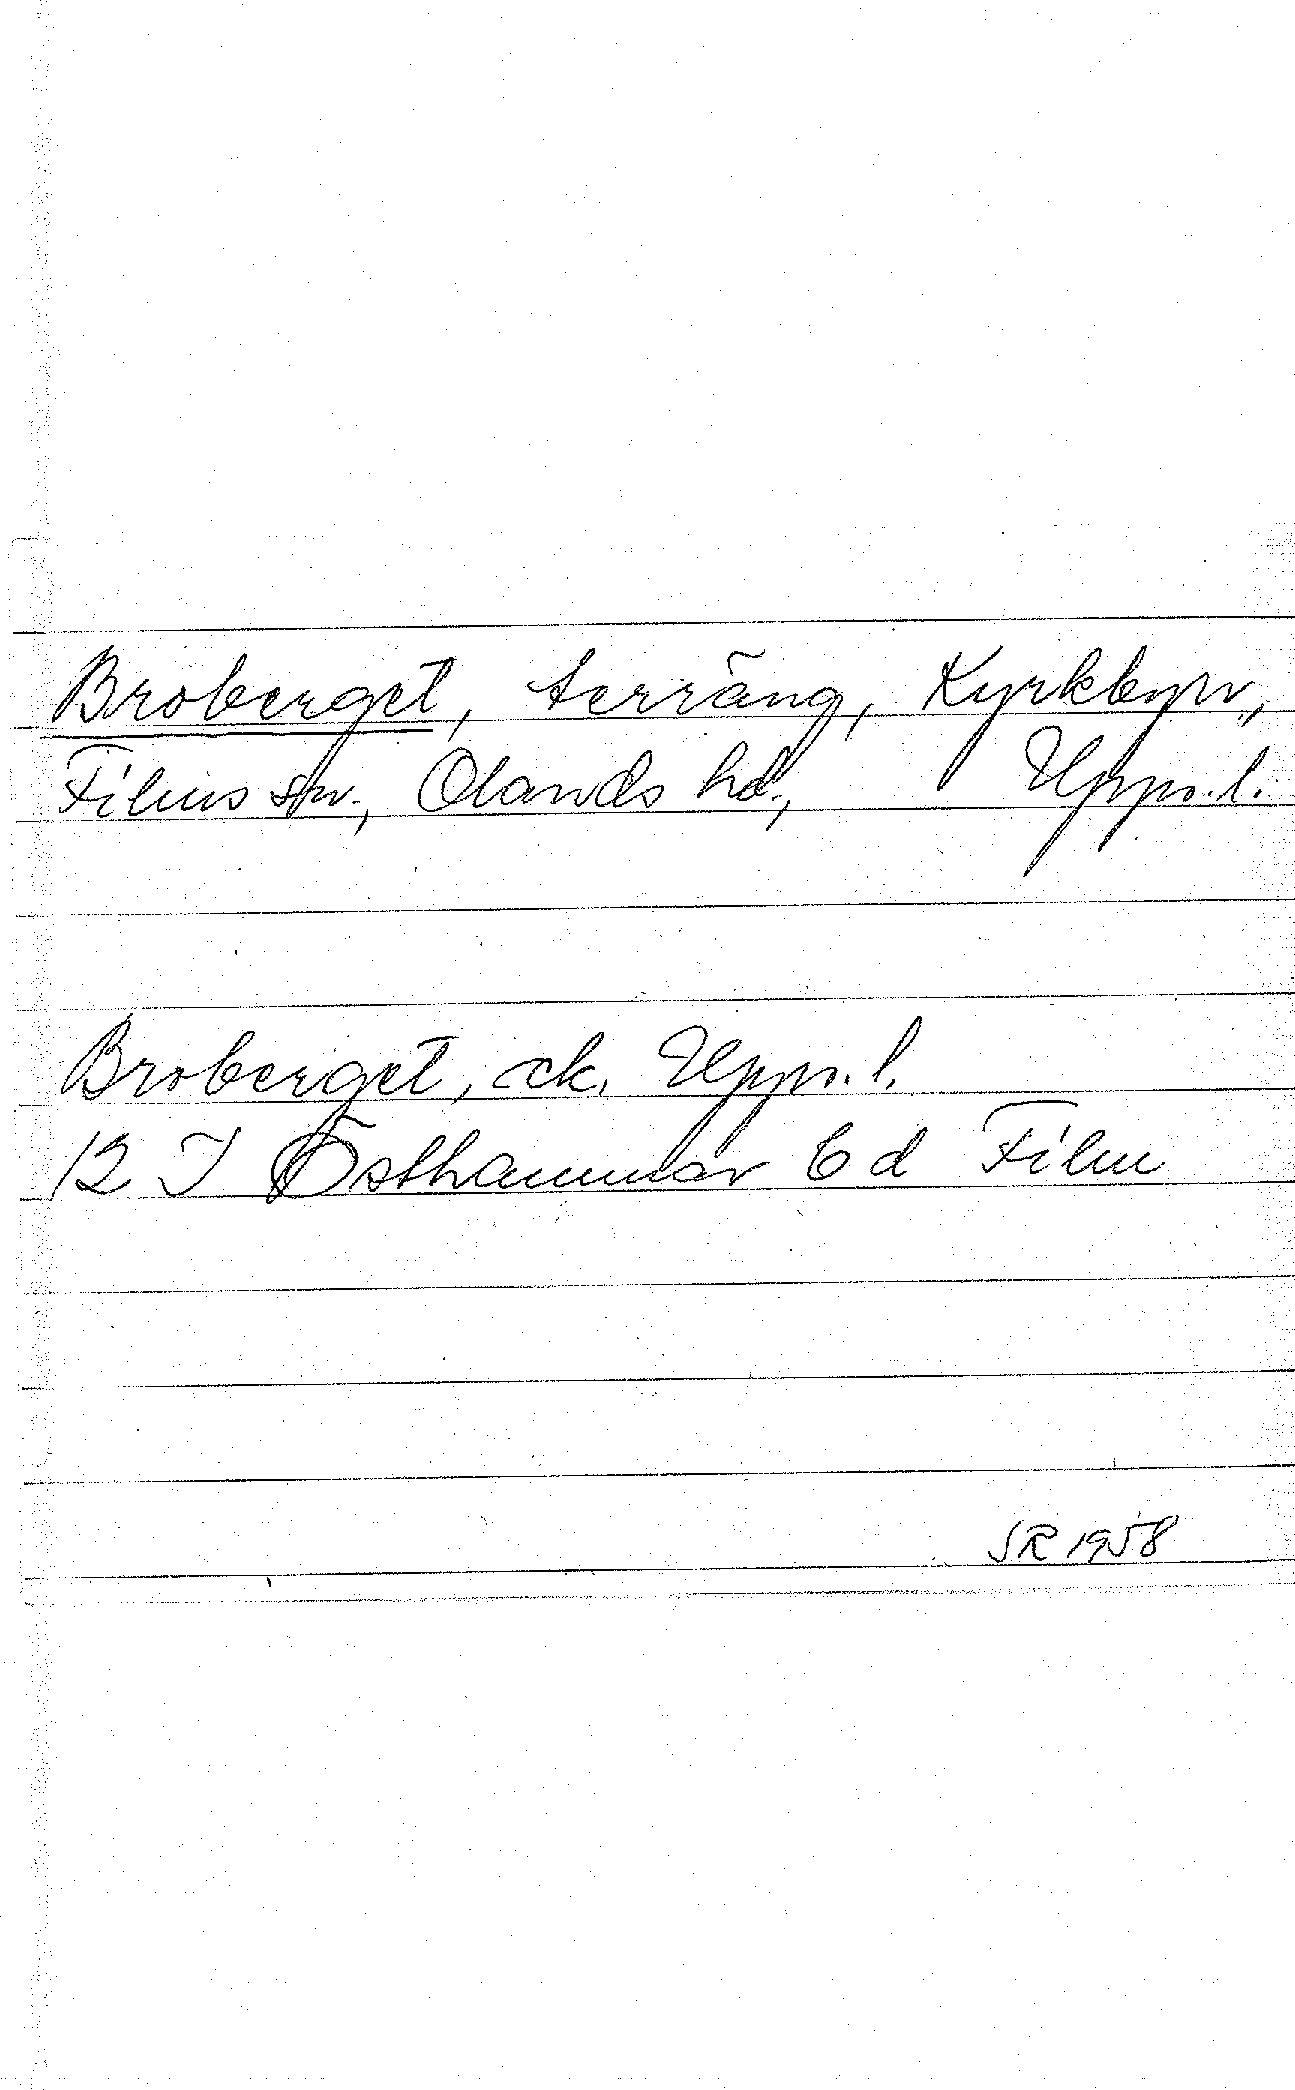 Broberget, terräng, Kyrkbyn,
Films sn., Olands hd., Upps.l.
Broberget, ek. Upps.l.
12 I Östhammar 6d Film
SR 1958